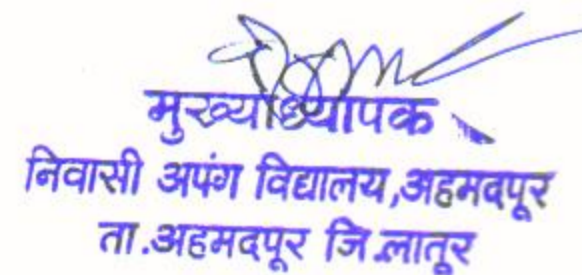 मुख्याध्यापक
निवासी अपंग विद्यालय,अहमदपूर
ता.अहमदपूर जि.लातूर